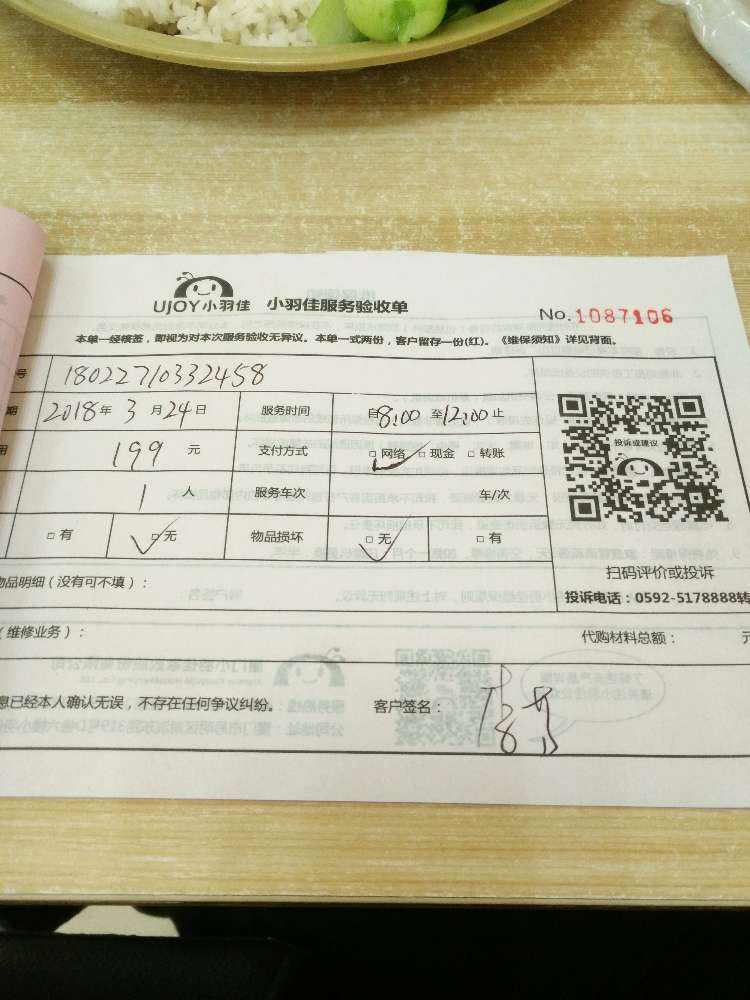 UJOY小羽佳 小羽佳服务验收单
No.1087106
本单一经核签，即视为对本次服务验收无异议。本单一式两份，客户留存一份(红)。《维保须知》详见背面。
号 18022710332458
期 2018年3月24日 服务时间 自8:00至12:00止
用 199 元 支付方式 □网络 □现金 □转账
1 人 服务车次 车/次
□有 □无 物品损坏 □无 □有
投诉或建议
扫码评价或投诉
投诉电话：0592-5178888转
物品明细（没有可不填）：
（维修业务）： 代购材料总额： 元
息已经本人确认无误，不存在任何争议纠纷。 客户签名：